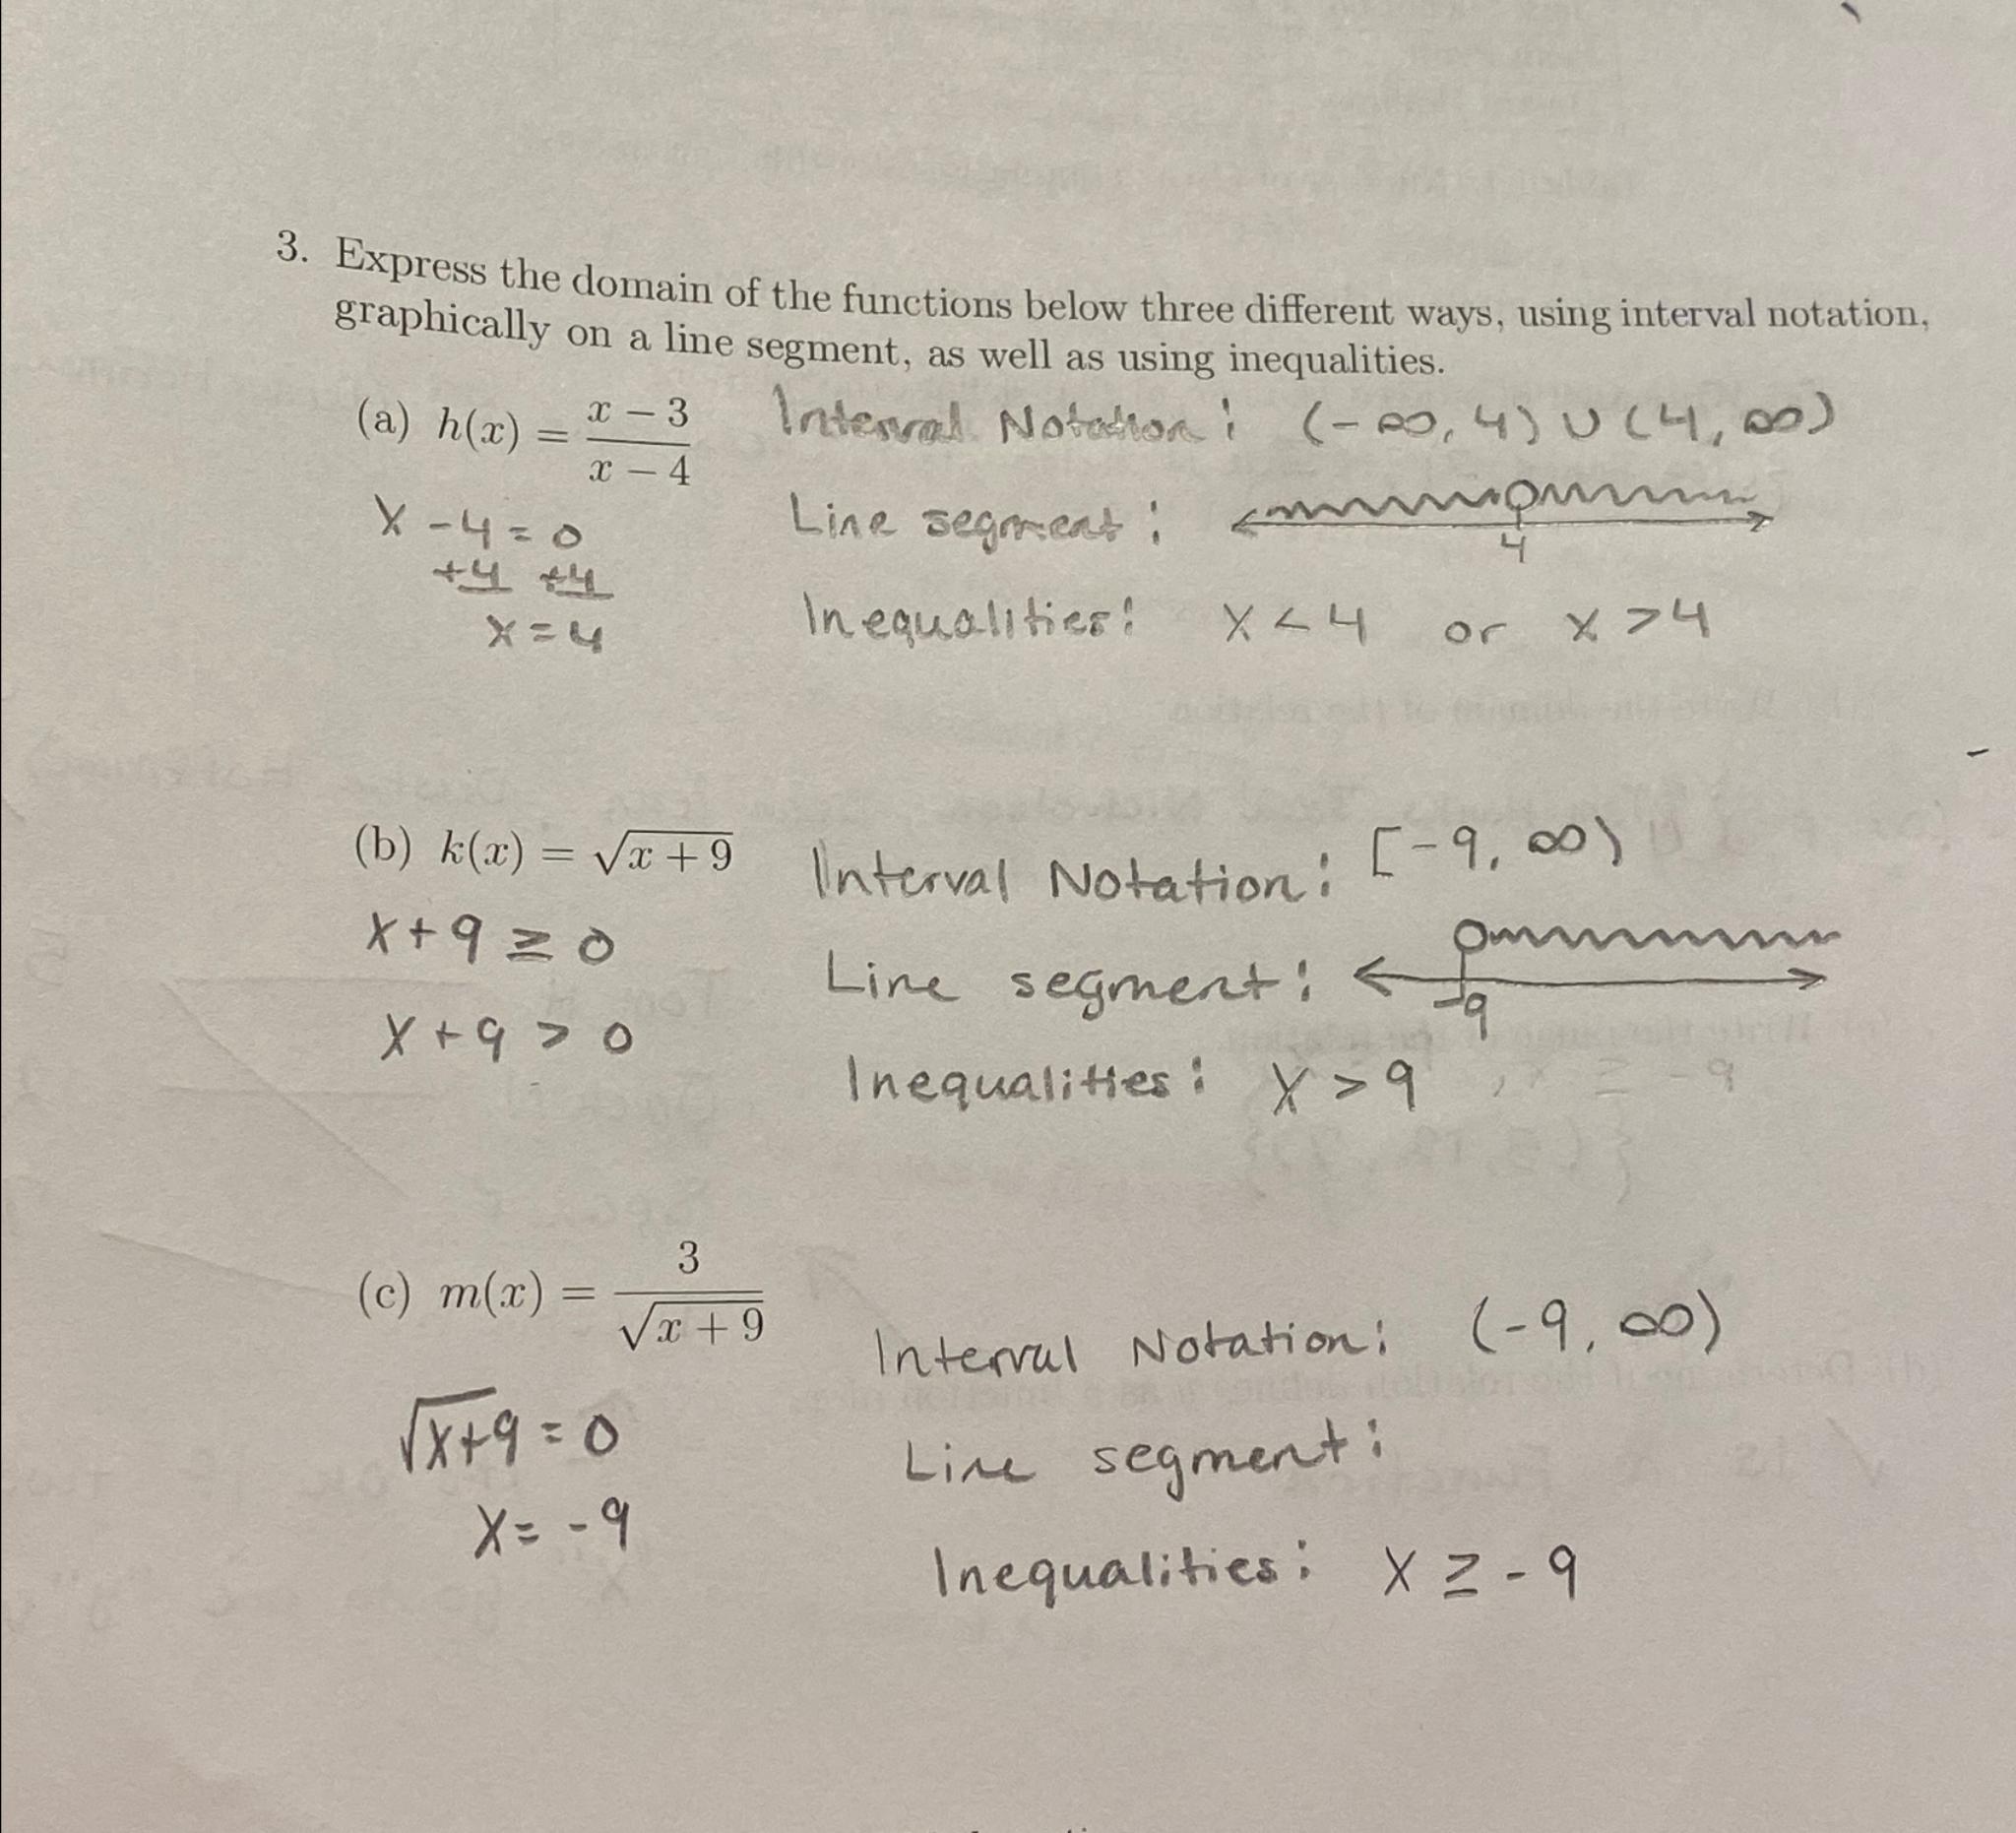 3. Express the domain of the functions below three different ways, using interval notation,
graphically on a line segment, as well as using inequalities.
(a) h(x) = \frac{x - 3}{x - 4} Interval Notation: (-∞, 4) ∪ (4, ∞)
x - 4 = 0 Line segment:
4
+4 +4
x = 4 Inequalities: x < 4 or x > 4
(b) k(x) = √(x + 9) Interval Notation: [-9, ∞)
x + 9 ≥ 0 Line segment:
-9
x + 9 > 0 Inequalities: x > 9
(c) m(x) = \frac{3}{\sqrt{x + 9}} Interval Notation: (-9, ∞)
√x+9 = 0 Line segment:
x = -9 Inequalities: x ≥ -9